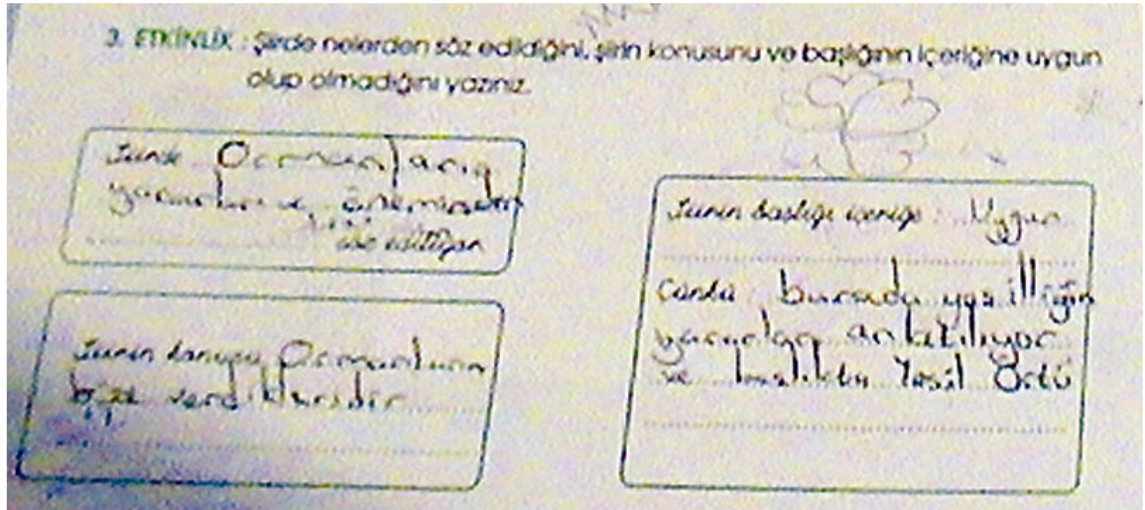 3. ETKİNLİK : Şiirde nelerden söz edildiğini, şiirin konusunu ve başlığının içeriğine uygun
olup olmadığını yazınız.
Şiirde Ormanların
yararları ve öneminden
söz ediliyor
Şiirin konusu Ormanların
bize verdikleridir
Şiirin başlığı içeriğe : Uygun
Çünkü burada yeşilliğin
yararları anlatılıyor
ve başlıkta Yeşil Örtü